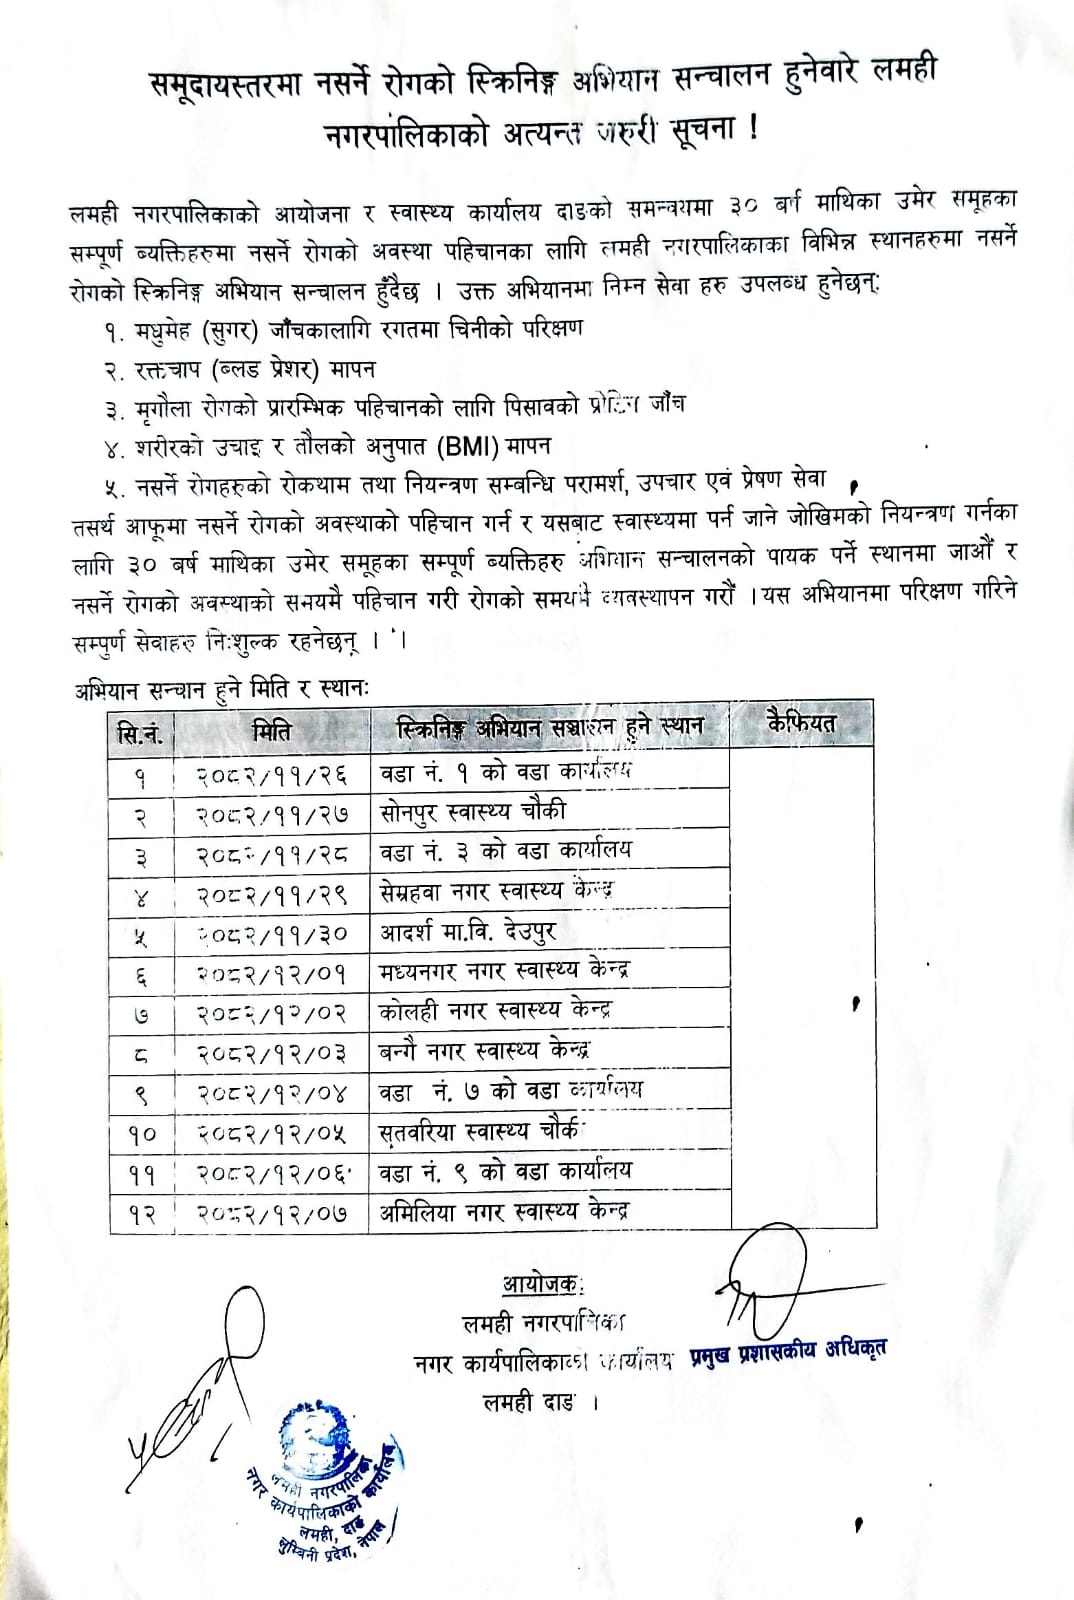 समूदायस्तरमा नसर्ने रोगको स्क्रिनिङ्ग अभियान सन्चालन हुनेवारे लमही
नगरपालिकाको अत्यन्त जरुरी सूचना !
लमही नगरपालिकाको आयोजना र स्वास्थ्य कार्यालय दाङको समन्वयमा ३० बर्ष माथिका उमेर समूहका
सम्पूर्ण ब्यक्तिहरुमा नसर्ने रोगको अवस्था पहिचानका लागि लमही नगरपालिकाका विभिन्न स्थानहरुमा नसर्ने
रोगको स्क्रिनिङ्ग अभियान सन्चालन हुँदैछ । उक्त अभियानमा निम्न सेवा हरु उपलब्ध हुनेछन्:
१. मधुमेह (सुगर) जाँचकालागि रगतमा चिनीको परिक्षण
२. रक्तचाप (ब्लड प्रेशर) मापन
३. मृगौला रोगको प्रारम्भिक पहिचानको लागि पिसावको प्रोटिन जाँच
४. शरीरको उचाइ र तौलको अनुपात (BMI) मापन
५. नसर्ने रोगहरुको रोकथाम तथा नियन्त्रण सम्बन्धि परामर्श, उपचार एवं प्रेषण सेवा
तसर्थ आफूमा नसर्ने रोगको अवस्थाको पहिचान गर्न र यसबाट स्वास्थ्यमा पर्न जाने जोखिमको नियन्त्रण गर्नका
लागि ३० बर्ष माथिका उमेर समूहका सम्पूर्ण ब्यक्तिहरु अभियान सन्चालनको पायक पर्ने स्थानमा जाऔं र
नसर्ने रोगको अवस्थाको समयमै पहिचान गरी रोगको समयमै व्यवस्थापन गरौं । यस अभियानमा परिक्षण गरिने
सम्पुर्ण सेवाहरु निःशुल्क रहनेछन् । ।
अभियान सन्चान हुने मिति र स्थानः
सि.नं. मिति स्क्रिनिङ्ग अभियान सञ्चालन हुने स्थान कैफियत
१ २०८२/११/२६ वडा नं. १ को वडा कार्यालय
२ २०८२/११/२७ सोनपुर स्वास्थ्य चौकी
३ २०८२/११/२८ वडा नं. ३ को वडा कार्यालय
४ २०८२/११/२९ सेम्रहवा नगर स्वास्थ्य केन्द्र
५ २०८२/११/३० आदर्श मा.वि. देउपुर
६ २०८२/१२/०१ मध्यनगर नगर स्वास्थ्य केन्द्र
७ २०८२/१२/०२ कोलही नगर स्वास्थ्य केन्द्र
८ २०८२/१२/०३ बन्गै नगर स्वास्थ्य केन्द्र
९ २०८२/१२/०४ वडा नं. ७ को वडा कार्यालय
१० २०८२/१२/०५ सतवरिया स्वास्थ्य चौकी
११ २०८२/१२/०६ वडा नं. ९ को वडा कार्यालय
१२ २०८२/१२/०७ अमिलिया नगर स्वास्थ्य केन्द्र
आयोजक:
लमही नगरपालिका
नगर कार्यपालिकाको कार्यालय प्रमुख प्रशासकीय अधिकृत
लमही दाङ ।
लमही नगरपालिका
नगर कार्यपालिकाको कार्यालय
लमही, दाङ
लुम्बिनी प्रदेश, नेपाल